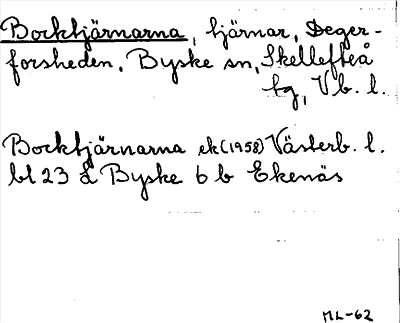 Bocktjärnarna, tjärnar, Deger-
forsheden, Byske sn, Skellefteå
tg, Vb. l.
Bocktjärnarna ek (1958) Västerb. l.
bl 23 d Byske 6 b Ekenäs
ML-62